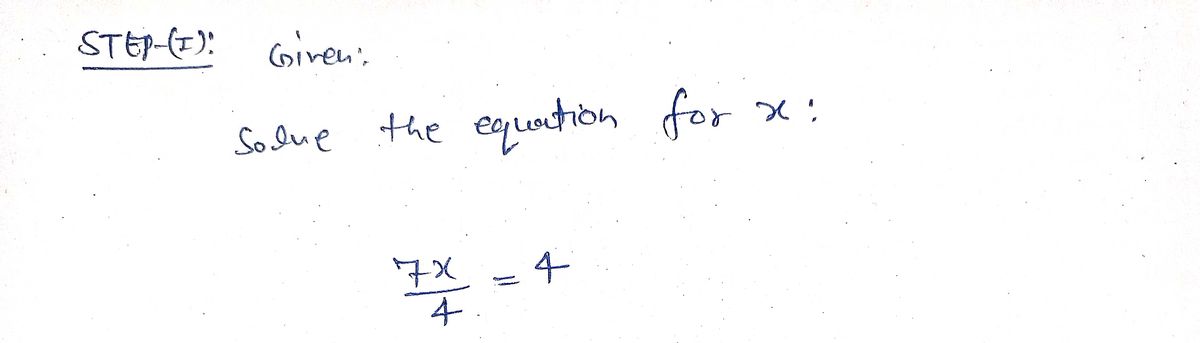 STEP-(I): Given:
Solve the equation for x:
7x/4 = 4